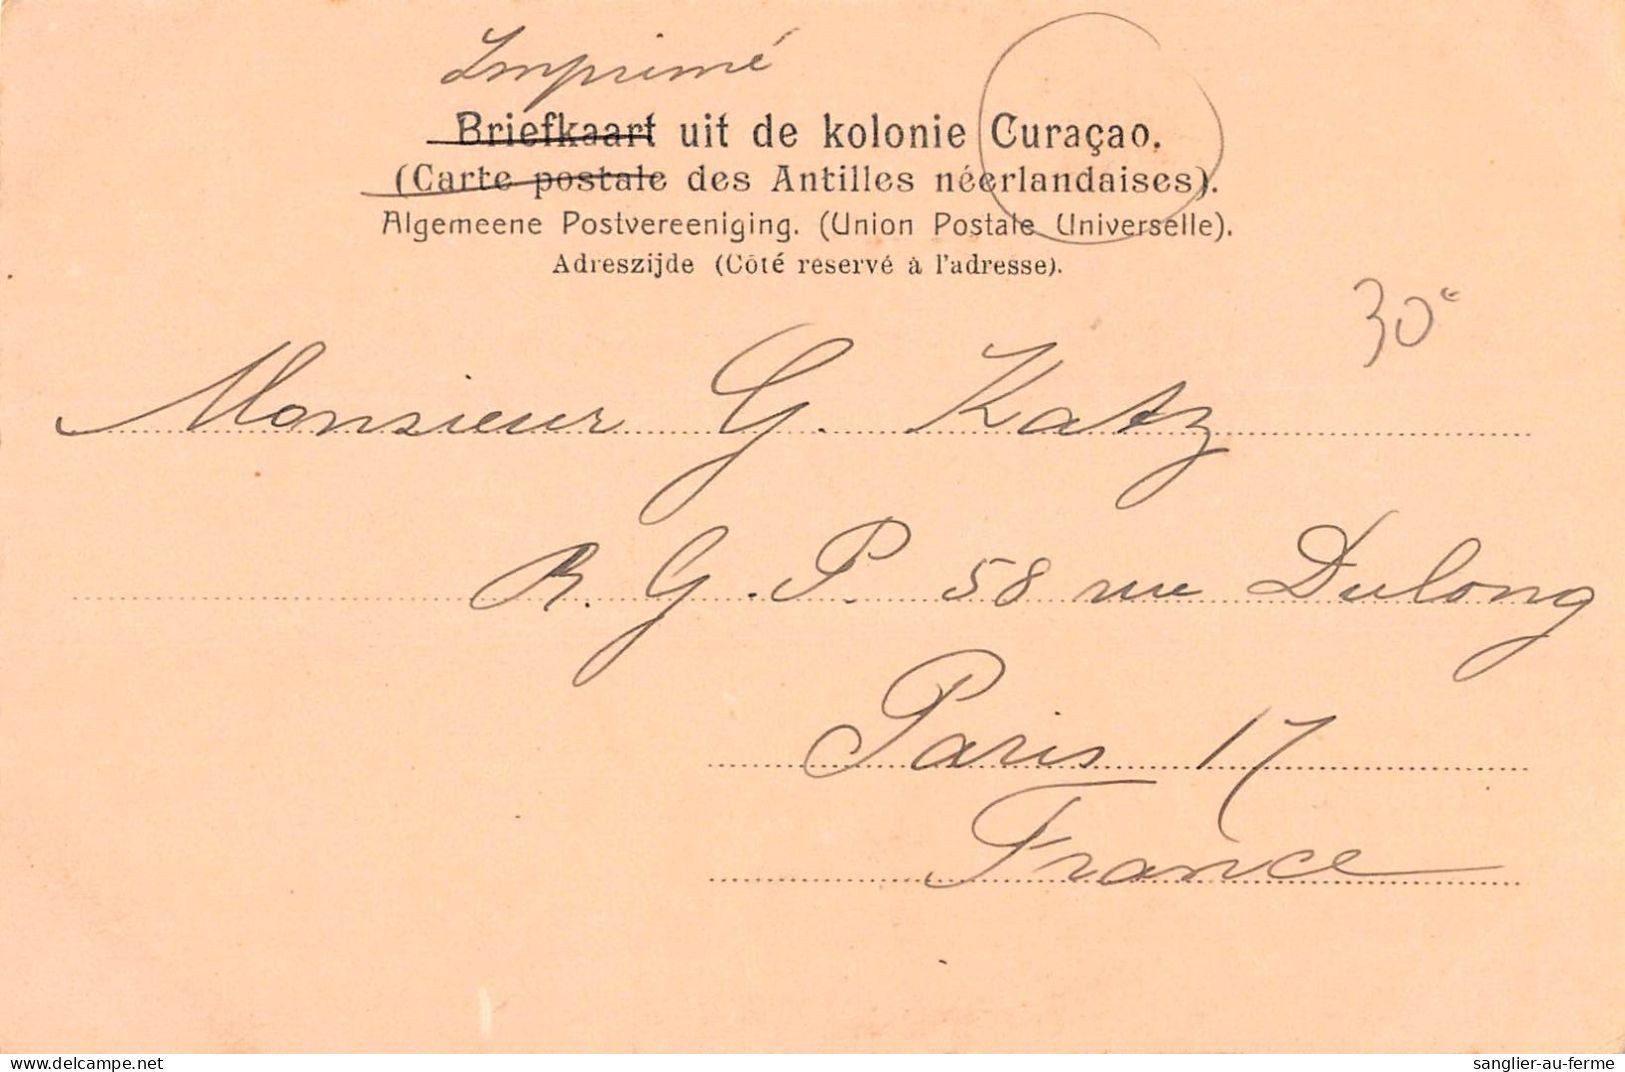 Imprimé
Briefkaart uit de kolonie Curaçao.
(Carte postale des Antilles néerlandaises).
Algemeene Postvereeniging. (Union Postale Universelle).
Adreszijde (Côté reservé à l'adresse).
30€
Monsieur G. Katz
R. G. P. 58 rue Dulong
Paris 17
France
www.delcampe.net
sanglier-au-ferme